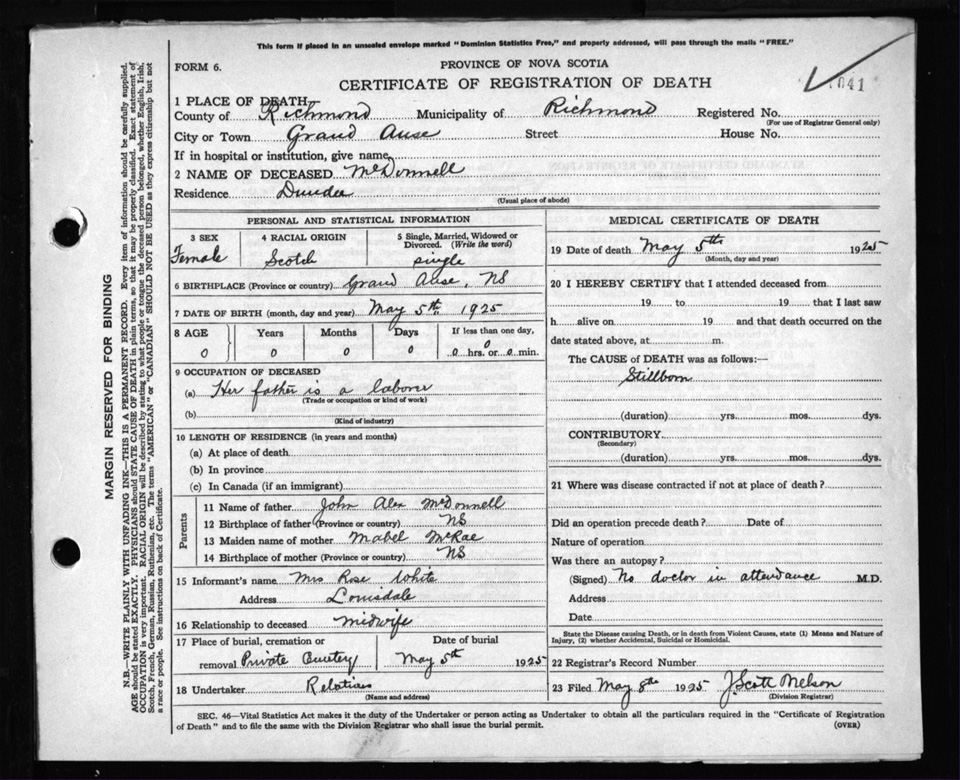 This form if placed in an unsealed envelope marked "Dominion Statistics Free," and properly addressed, will pass through the mails "FREE."
FORM 6.
PROVINCE OF NOVA SCOTIA
CERTIFICATE OF REGISTRATION OF DEATH
1041
1 PLACE OF DEATH
County of Richmond Municipality of Richmond Registered No.
(For use of Registrar General only)
City or Town Grand Anse Street House No.
If in hospital or institution, give name
2 NAME OF DECEASED McDonnell
Residence Dundee
(Usual place of abode)
PERSONAL AND STATISTICAL INFORMATION
3 SEX 4 RACIAL ORIGIN 5 Single, Married, Widowed or Divorced. (Write the word)
Female Scotch single
6 BIRTHPLACE (Province or country) Grand Anse, NS
7 DATE OF BIRTH (month, day and year) May 5th 1925
8 AGE Years Months Days If less than one day,
0 0 0 0 0 hrs. or 0 min.
9 OCCUPATION OF DECEASED
(a) Her father is a laborer
(Trade or occupation or kind of work)
(b)
(Kind of industry)
10 LENGTH OF RESIDENCE (in years and months)
(a) At place of death
(b) In province
(c) In Canada (if an immigrant)
Parents
11 Name of father John Alex McDonnell
12 Birthplace of father (Province or country) NS
13 Maiden name of mother Mabel McRae
14 Birthplace of mother (Province or country) NS
15 Informant's name Mrs Rose White
Address Louisdale
16 Relationship to deceased midwife
17 Place of burial, cremation or Date of burial
removal Private Cemetery May 5th 1925
18 Undertaker Relatives
(Name and address)
MEDICAL CERTIFICATE OF DEATH
19 Date of death May 5th 1925
(Month, day and year)
20 I HEREBY CERTIFY that I attended deceased from
19 to 19 that I last saw
h alive on 19 and that death occurred on the
date stated above, at m.
The CAUSE of DEATH was as follows:—
Stillborn
(duration) yrs. mos. dys.
CONTRIBUTORY
(Secondary)
(duration) yrs. mos. dys.
21 Where was disease contracted if not at place of death?
Did an operation precede death? Date of
Nature of operation
Was there an autopsy?
(Signed) No doctor in attendance M.D.
Address
Date
State the Disease causing Death, or in death from Violent Causes, state (1) Means and Nature of
Injury, (2) whether Accidental, Suicidal or Homicidal.
22 Registrar's Record Number
23 Filed May 8th 1925 J. Scott Nelson
(Division Registrar)
SEC. 46—Vital Statistics Act makes it the duty of the Undertaker or person acting as Undertaker to obtain all the particulars required in the "Certificate of Registration
of Death" and to file the same with the Division Registrar who shall issue the burial permit. (OVER)
MARGIN RESERVED FOR BINDING
N.B.—WRITE PLAINLY WITH UNFADING INK—THIS IS A PERMANENT RECORD. Every item of information should be carefully supplied.
AGE should be stated EXACTLY. PHYSICIANS should STATE CAUSE OF DEATH in plain terms, so that it may be properly classified. Exact statement of
OCCUPATION is very important. RACIAL ORIGIN will be described by stating to what people or tongue the deceased person belonged, whether English, Irish,
Scotch, French, German, Russian, Ruthenian, etc. The terms "AMERICAN" or "CANADIAN" SHOULD NOT BE USED as they express citizenship but not
a race or people. See instructions on back of Certificate.